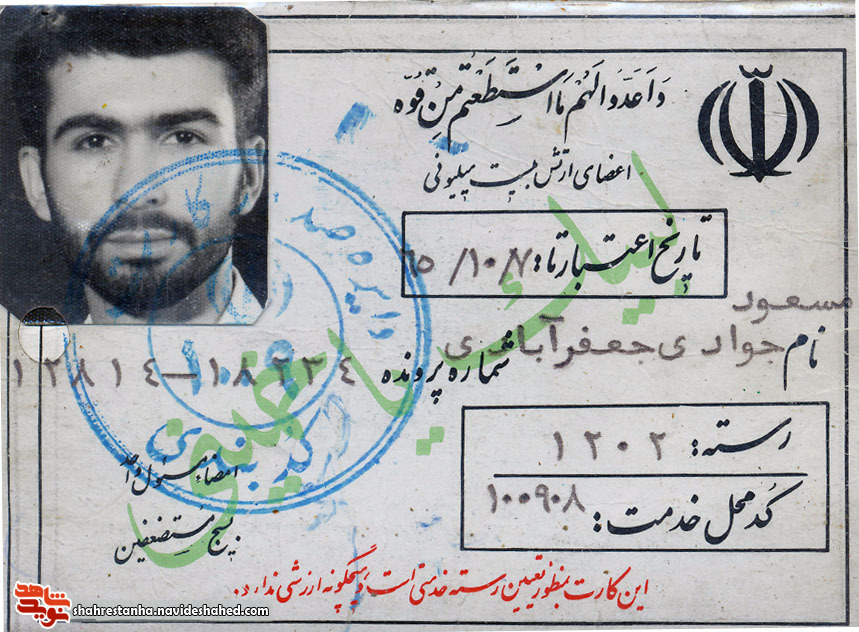 وَاَعِدّوُا لَهُم مَا اسْتَطَعْتُم مِنْ قُوّه
اعضای ارتش بیست میلیونی
تاریخ اعتبار تا: ۶۵/۱۰/۷
مسعود
نام جوادی جعفرآبادی
شماره پرونده ۱۲۸۱۴-۱۱۸۶۲۴
رسته: ۱۲۰۲
کُد محل خدمت: ۱۰۰۹۰۸
لبیک یا خمینی
دایره صد
کد بندی
امضاء مسئول واحد
بسیج مستضعفین
این کارت بمنظور تعیین رسته خدمتی است و هیچگونه ارزشی ندارد.
شاهد
نوید
shahrestanha.navideshahed.com